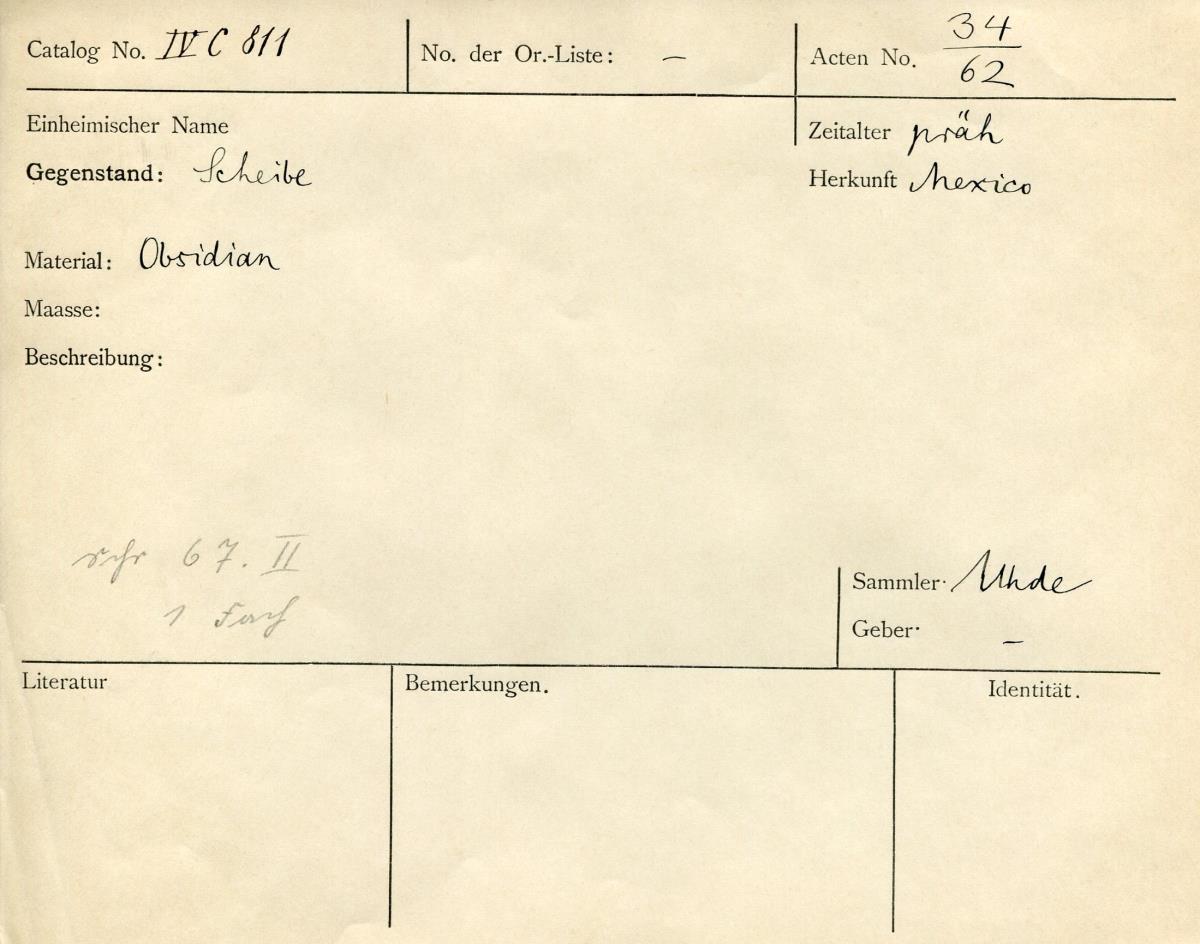 Catalog No. IV C 811 No. der Or.-Liste: — Acten No. 34/62
Einheimischer Name Zeitalter präh
Gegenstand: Scheibe Herkunft Mexico
Material: Obsidian
Maasse:
Beschreibung:
67. II
1 Fach
Sammler· Uhde
Geber· —
Literatur Bemerkungen. Identität.